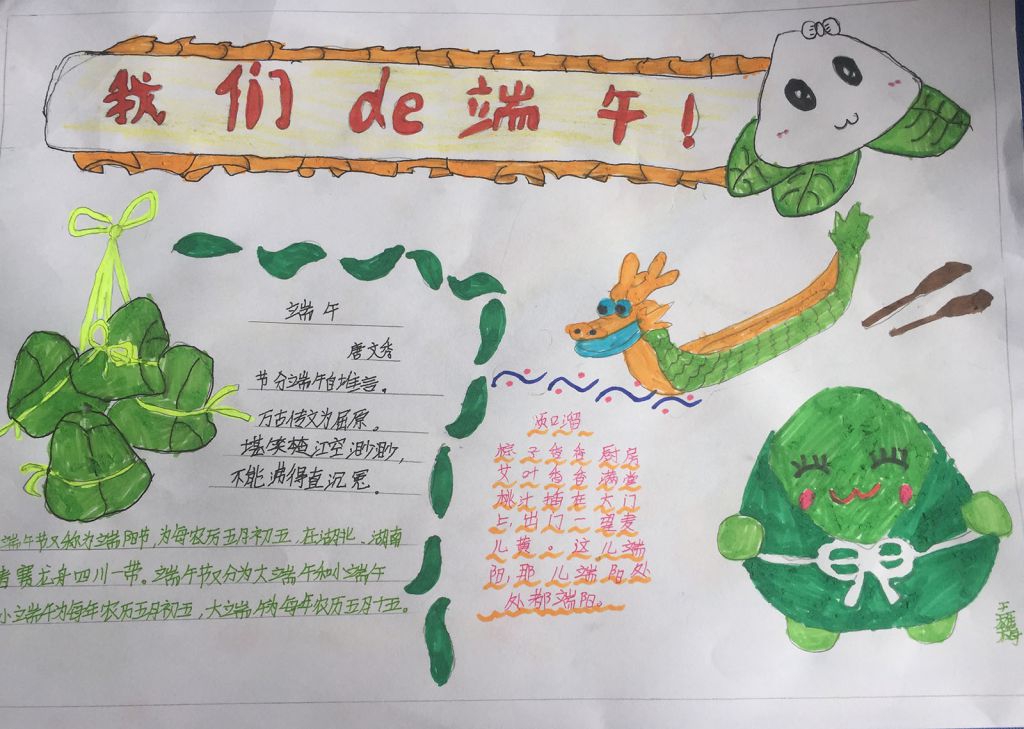 我们de端午！
端午
唐文秀
节分端午自谁言。
万古传文为屈原。
堪笑楚江空渺渺，
不能洗得直沉冤。
端午节又称为端阳节，为每农历五月初五，在湖北、湖南
青赛龙舟四川一带。端午节又分为大端午和小端午
小端午为每年农历五月初五，大端午为每年农历五月十五。
顺口溜
粽子香香厨房
艾叶香香满堂
桃汁插在大门
上，出门一望麦
儿黄。这儿端
阳，那儿端阳处
处都端阳。